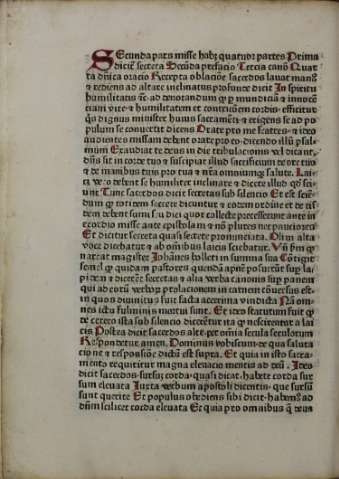 Secunda pars misse habz quatuor partes Prima
dicit̄ secreta Secūda prefacio Tercia canō Quar
ta diuica oracio Recepta oblacione sacerdos lauat man9
& rediens ad altare inclinatus profunde dicit In spiritu
humilitatis &c̄ ad denotandum qꝫ per mundiciā & innocē
ciam vite & humilitatem et contricōem cordis efficitur
dignus minister huius sacramēti & erigens se ad po
pulum se conuertit dicens Orate pro me fratres & ideo
quociens missam debent orate pro eo dicendo illū psal
mum Exaudiat te deus in die tribulaciōis vel dicant
dn̄s sit in corde tuo & suscipiat illud sacrificium de ore tuo
& de manibus tuis pro tua & nr̄a omniumqꝫ salute Lai
ci vero debent se humiliter inclinare & dicere illud qd̄ sci
unt Tunc sacerdos dicit secretas sub silencio Et est sciēn
dum qꝫ totidem secrete dicuntur & eodem ordine et de eis
dem debent sumi sicut quot collecte precesserunt ante in
exordio misse ante epistolam & nō plures nec pauciores
Et dicitur secreta quasi secrete pronunciata Olim alta
voce dicebatur & ab om̄ibus laicis sciebatur Vn̄ fm̄ qꝫ
narrat magister Johānes belleti in summa sua Cōtigit
semel qꝫ quidam pastores quendā apud posuerūt sup la
pidem & dicerent secretas & alia verba canonis sup panem
qui ad eorū verborū prolacionem in carnem conuersus est
in quos diuinitus fuit facta acerrima vindicta Nā om
nes ictu fulminis mortui sunt Et ideo statutum fuit qꝫ
de cetero ista sub silencio dicerētur ita qꝫ nescirentur a lai
cis Postea dicit sacerdos alte per omnia secula seculorum
Respondetur amen Dominus vobiscum de qua saluta
cione & responsiōe dictū est supra Et quia in isto sacra
mento requiritur magna eleuacio mentis ad deū Ideo
dicit sacerdos sursum corda quasi dicat habete corda sur
sum eleuata Iuxta verbum apostoli dicentis que sursū
sunt querite Et populus obediens sibi dicit habem9 ad
dn̄m scilicet corda eleuata Et quia pro omnibus qꝫ deus